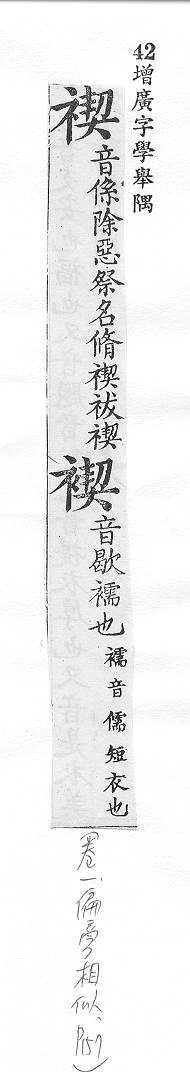 42增廣字學舉隅
禊音係除惡祭名脩禊祓禊
褉音歇襦也襦音儒短衣也
卷一、偏旁相似、P157)